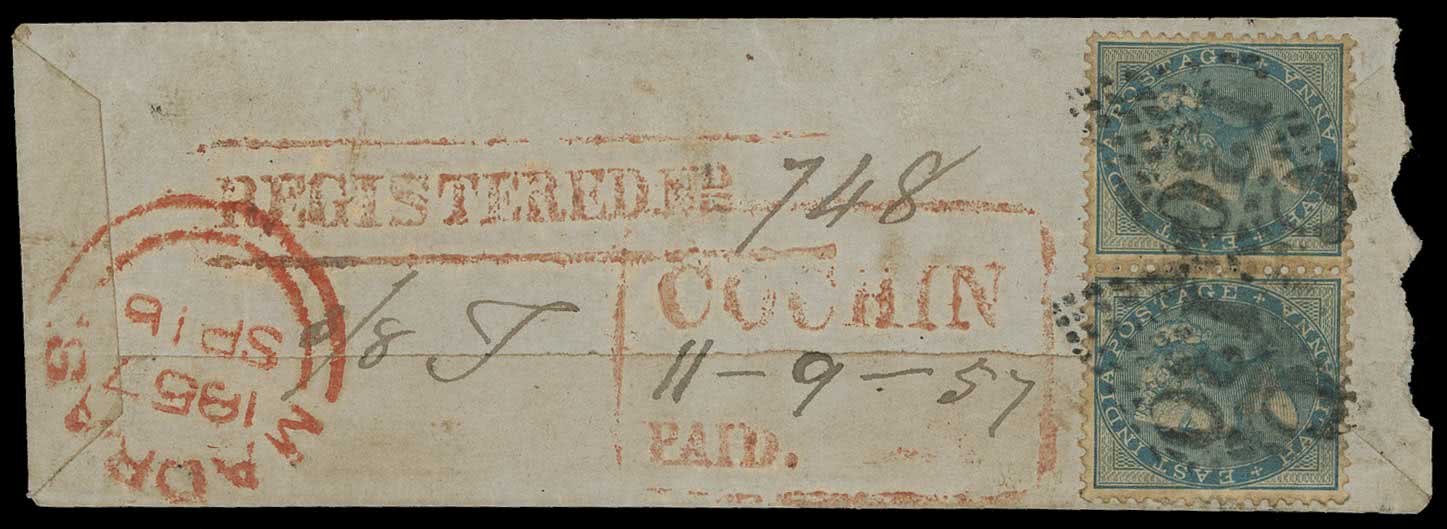 REGISTERED No 748
9/8 J
COCHIN
11-9-57
PAID.
MADRAS
1857
SP 16
EAST INDIA POSTAGE
HALF ANNA
130
EAST INDIA POSTAGE
HALF ANNA
130